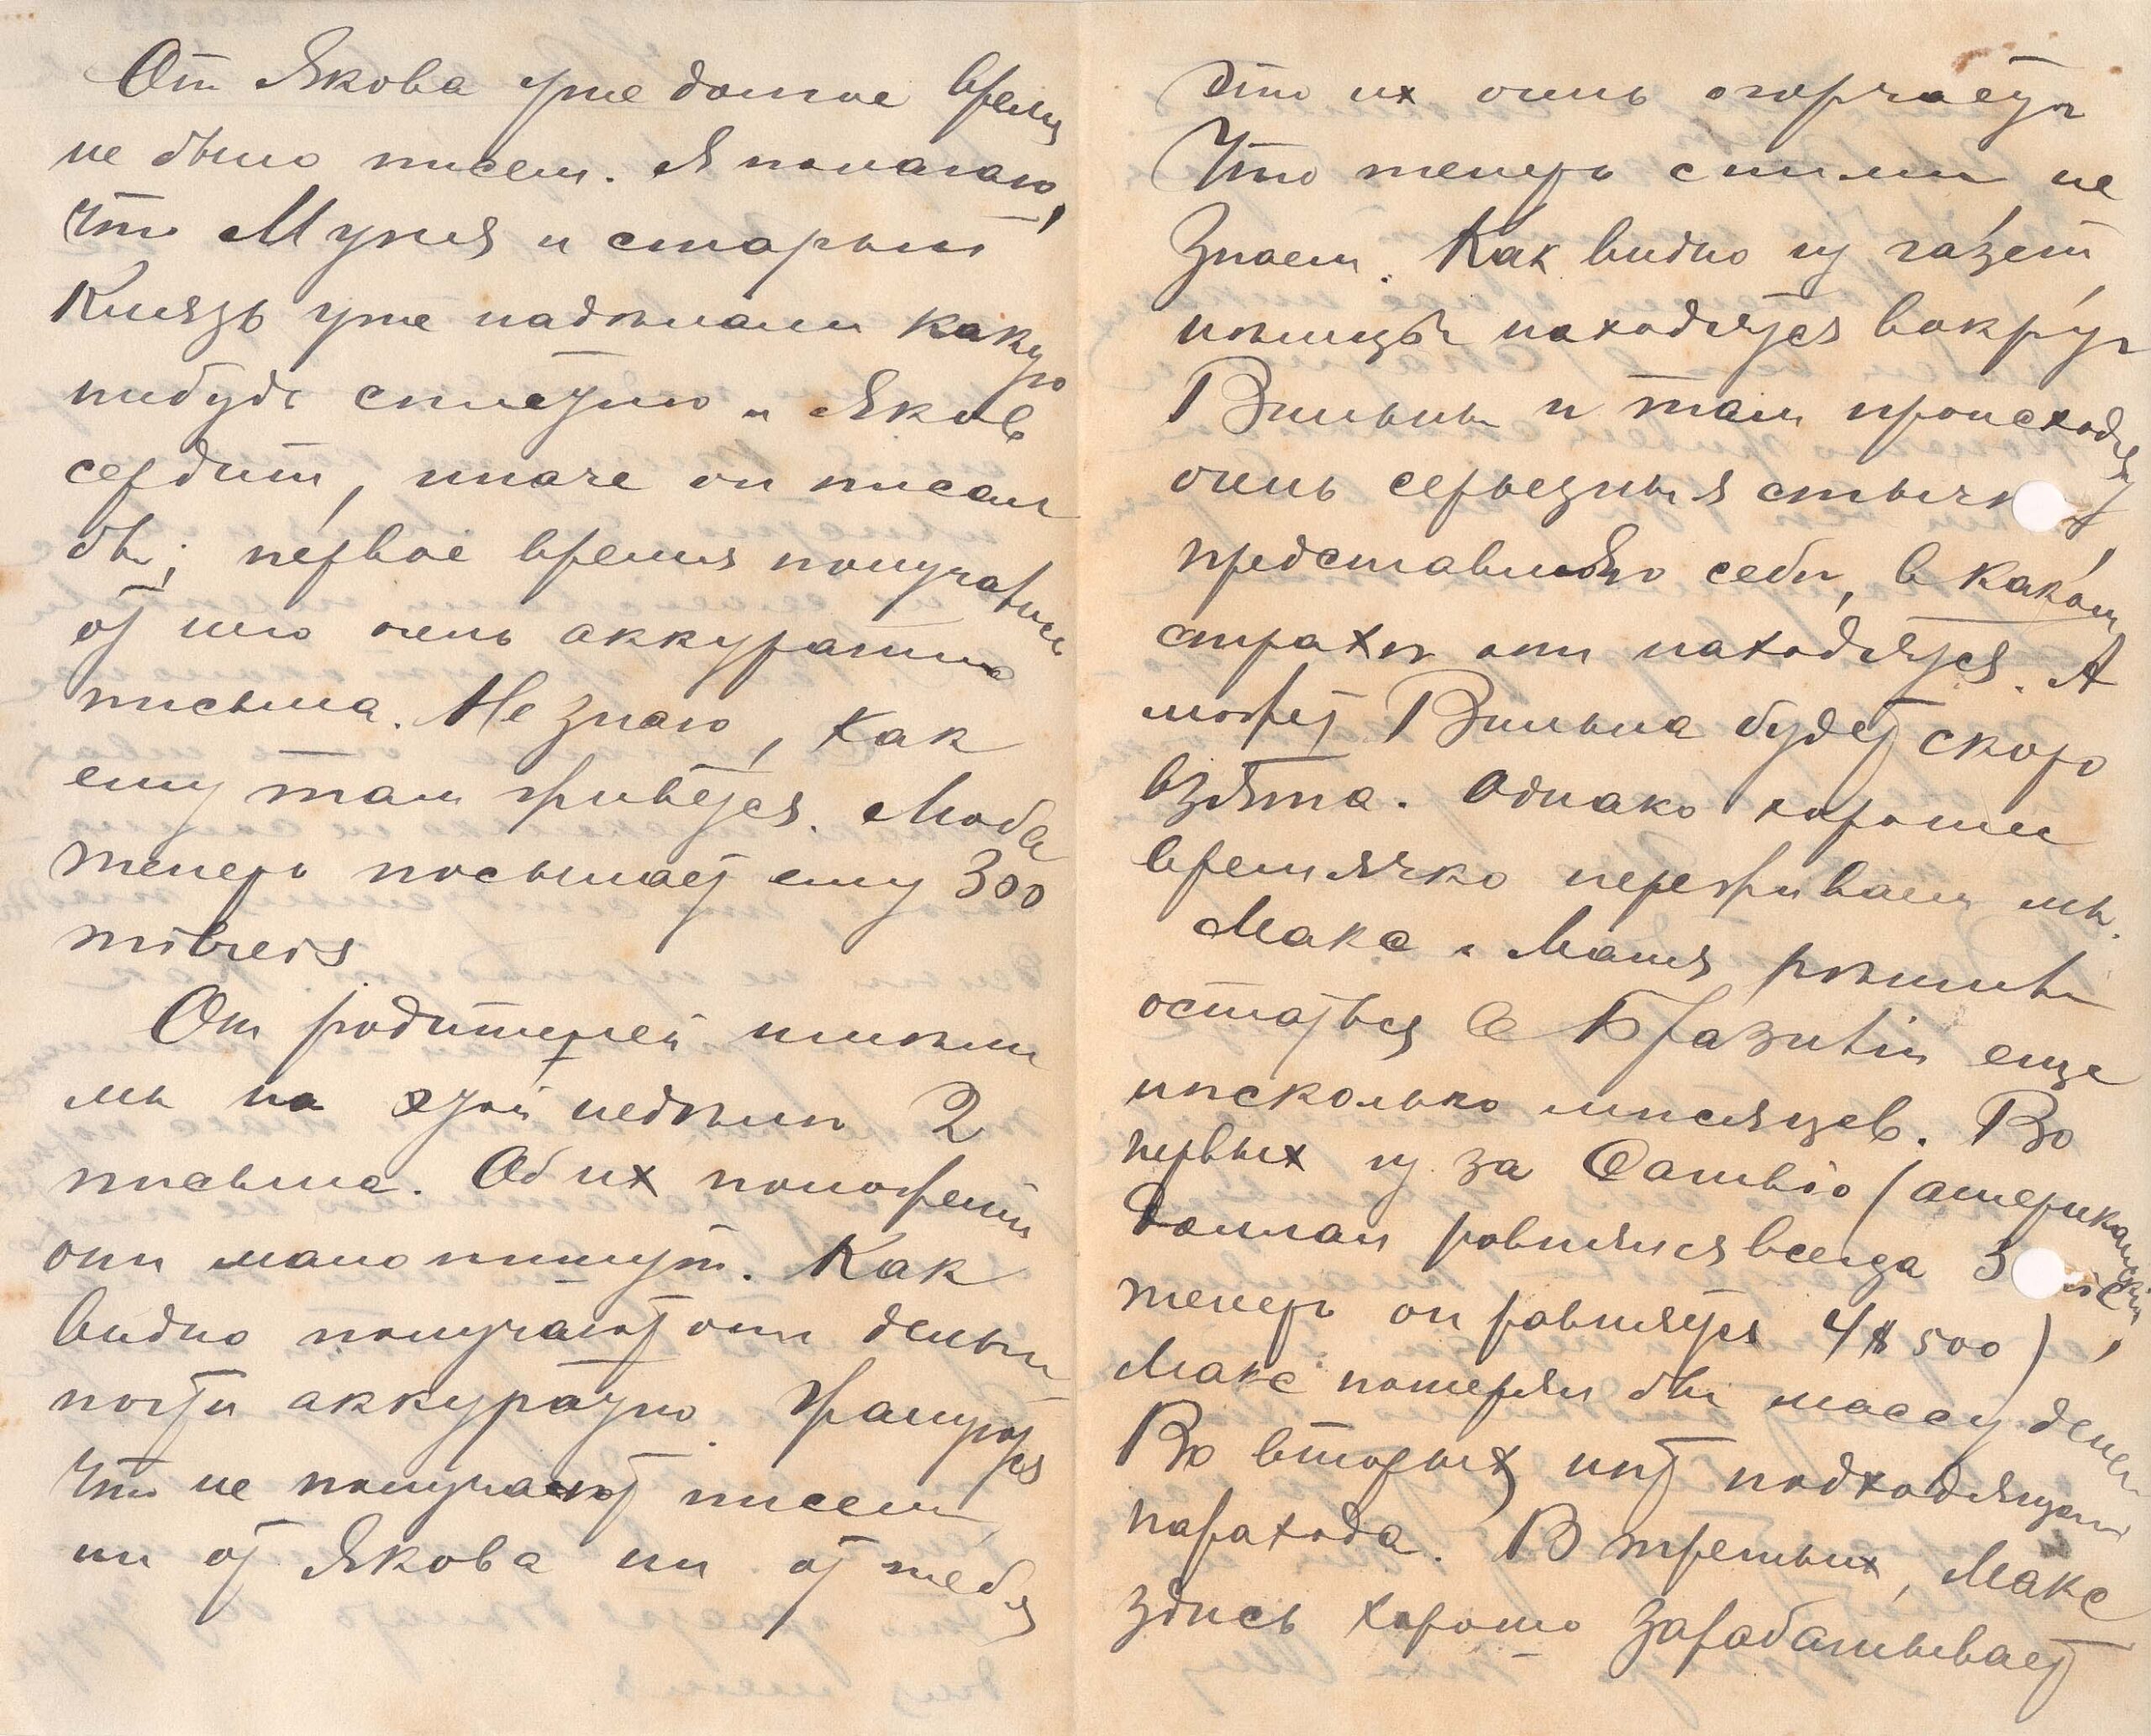 От Якова уже долгое время
не было писем. Я полагаю,
что Муня и старый
Князь уже надѣлали какую
нибудь сплетню и Яков
сердит, иначе он писал
бы; первое время получались
от него очень аккуратно
письма. Не знаю, как
ему там живется. Мода
теперь посылает ему 300
milreis
От родителей имѣли
мы на этой недѣли 2
письма. Об их положеніи
они мало пишут. Как
видно получают они деньги
почти аккуратно. Жалуются
что не получают писем
ни от Якова ни от тебя
это их очень огорчает
Что теперь с ними не
знаем. Как видно из газет,
нѣмцы находятся вокруг
Вильны и там происходят
очень серьезныя стычк
представляю себѣ, в каком
страхѣ они находятся. А
может Вильна будет скоро
взята. Однако хорошее
времячко переживаем мы.
Макс и Маня рѣшили
остаться в Бразиліи еще
нѣсколько мѣсяцев. Во
первых из за Cambio (американскій
доллар равнялся всегда 3
теперь он равняется 4$500),
Макс потерял бы массу денег
Во вторых нѣт подходящаго
парахода. В третьих, Макс
здѣсь хорошо зарабатывает